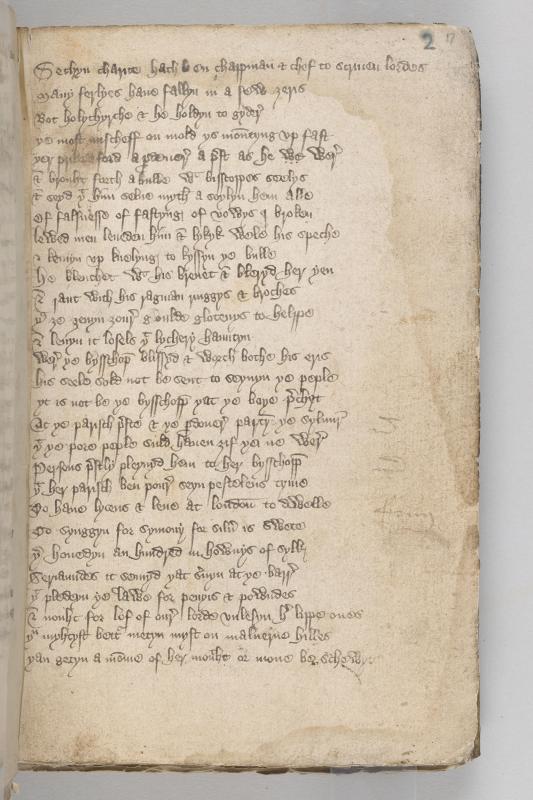 2
Sethyn charite hath ben chappman & chef to scriuen lordes
Many ferlyes haue fallyn in a few zeris
Bot holychyrche & he holdyn to gyder
ye most myscheff on mold ys mountyng vp fast
yer prechid a pardoner a prst as he wer
& brouht forth a bulle wt bisschopes seelys
& seyd yt hym selue myth a soylyn hem alle
Of falsnesse of fastyng of vowys I broken
lewed men leueden hym & lykyt wele his speche
& kemyn vp knelyng to kyssyn ye bulle
he blenchet wt his breuet & bleryd her yen
& raut with his ragman ryngys & broches
yt ze zeuyn zour goulde glotenys to helppe
& leuyn it losels yt lychery hauntyn
Wer ye bysschop blissyd & worth bothe his eris
his seele sold not be sent to deseyuyn ye peple
yt is not be ye bysschopp yat ye boye prechyt
At ye parisch prste & ye pardoner partyn ye syluir
yt ye pore peple suld hauen zif yei ne wer
Persens & prstys pleynyd hem to her bysschopp
yt her parisch ben pour seyn pestelens tyme
To haue lycens & leue at london to dwelle
To synggyn for symony for siluer is swete
yr houedyn an hundred in howuys of sylk
Seriauntes it semyd yat seruyn at ye barr
& pledeyn ye lawe for penyis & powndes
& nouht for lof of our lorde vnlesyn her lippe ones
yu myhtyst bett metyn myst on maluerne hilles
yan getyn a mome of her mouht or mone be schewyt